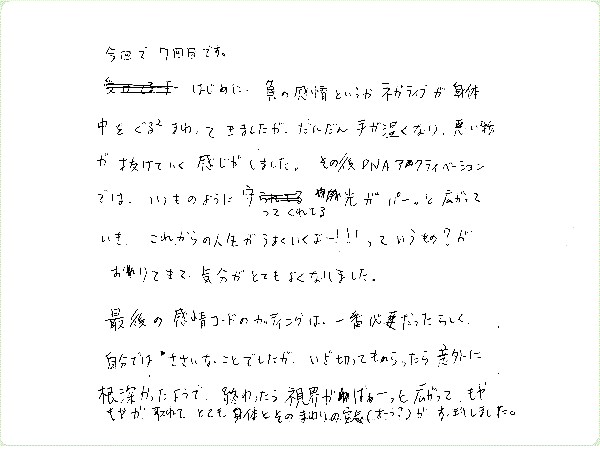 今回で 7回目です。
はじめに、負の感情というか ネガティブが 身体
中を ぐるぐる まわって きましたが、だんだん 手が温くなり、悪い物
が 抜けていく 感じが しました。 その後 DNA アクティベーション
では、いつものように 守ってくれてる 光が パーっと 広がって
いき、これからの人生が うまくいくなー!!! っていうもの?が
おりてきて、気分が とてもよくなりました。
最後の 感情コードの カッティングは、一番 必要だったらしく、
自分では ささいなことでしたが、いざ切ってもらったら 意外に
根深かったようで、終わったら 視界が ばぁーっと 広がって、もや
もやが 取れて、とても 身体と そのまわりの が すっきりしました。